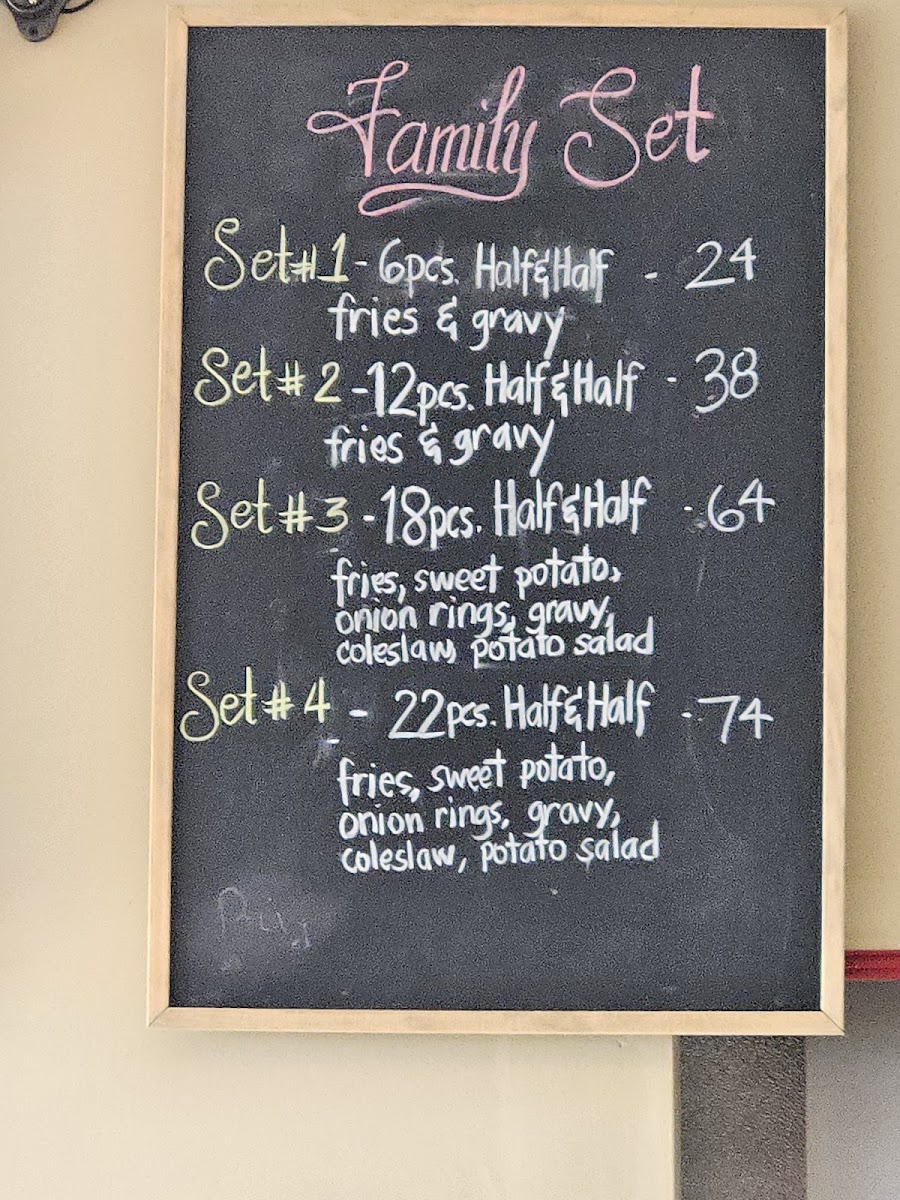 Family Set
Set#1 - 6pcs. Half&Half - 24
fries & gravy
Set#2 - 12pcs. Half&Half - 38
fries & gravy
Set#3 - 18pcs. Half&Half - 64
fries, sweet potato,
onion rings, gravy,
coleslaw, potato salad
Set#4 - 22pcs. Half&Half - 74
fries, sweet potato,
onion rings, gravy,
coleslaw, potato salad